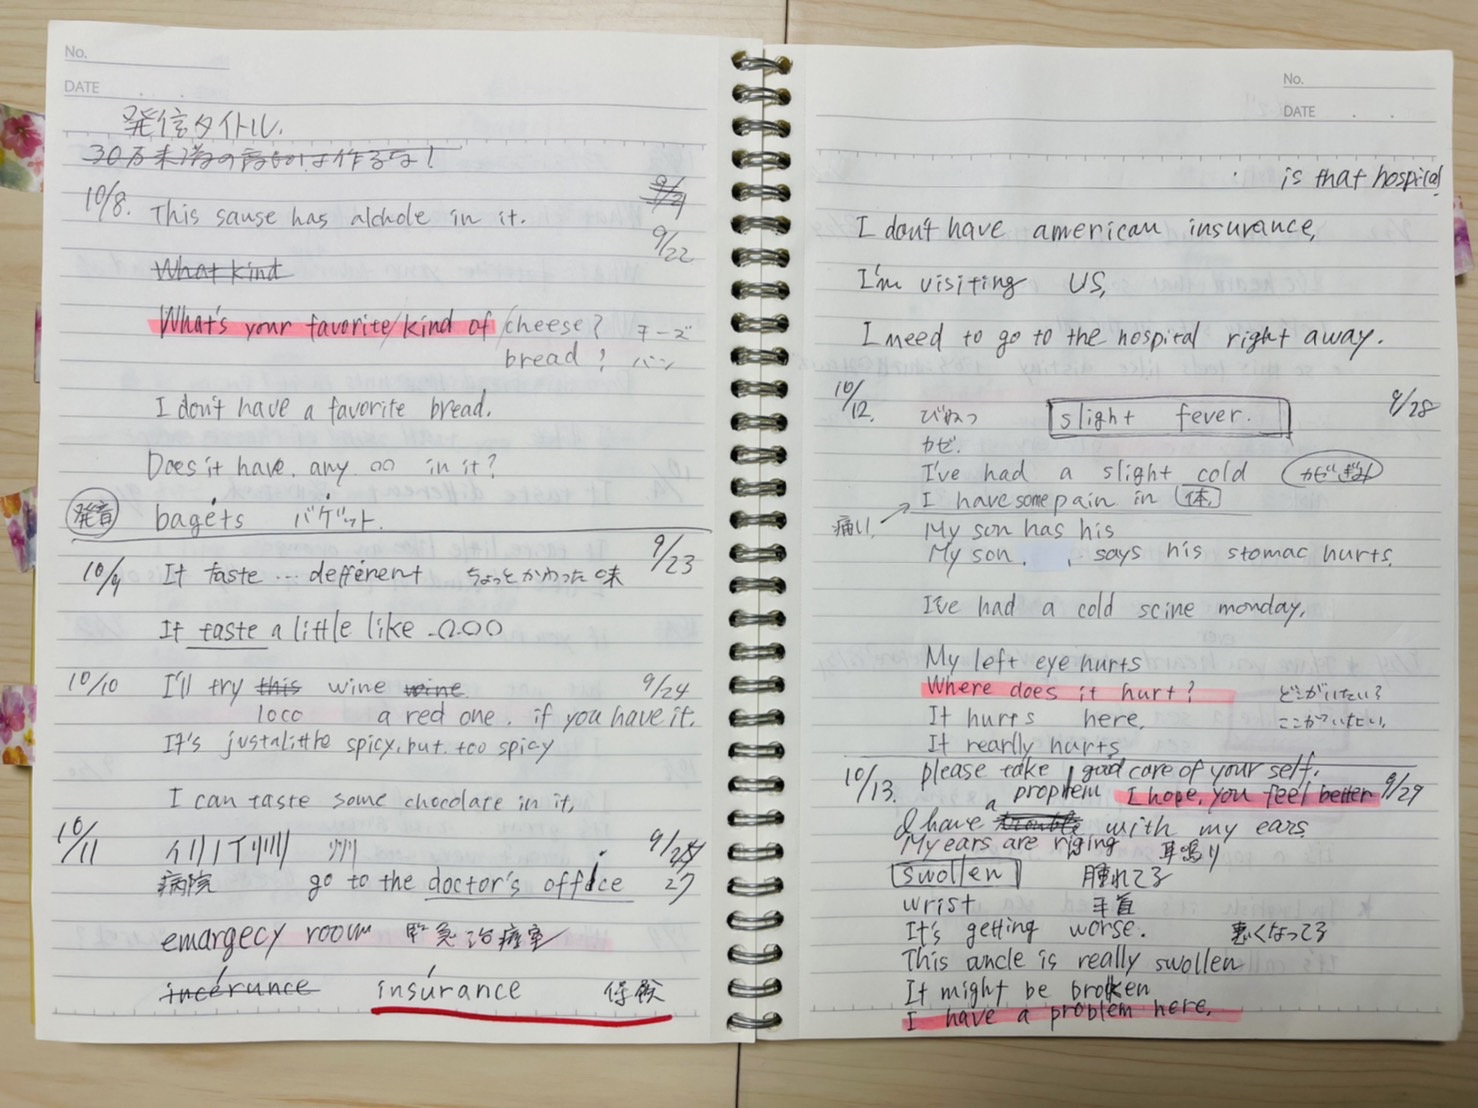 No.
DATE . .
発信タイトル.
30万未満の は作るな!
10/8. This sause has alchole in it.
9/22
What kind
What's your favorite/kind of /cheese? チーズ
bread? パン
I don't have a favorite bread.
Does it have any ○○ in it?
発音 bagets バゲット.
10/9 It taste … defferent ちょっとかわった味 9/23
It taste a little like ○○○
10/10 I'll try this wine wine. 9/24
loco a red one. if you have it.
It's justalitthe spicy. but. too spicy
I can taste some chocolate in it.
10/11
病院 go to the doctor's office 27
emargecy room 緊急治療室
incerunce insurance 保険
No.
DATE . .
is that hospital
I don't have american insurance,
I'm visiting US,
I need to go to the hospital right away.
10/12. びねつ slight fever. 9/28
カゼ.
I've had a slight cold カゼぎみ
I have some pain in 体.
痛い, My son has his
My son. says his stomac hurts.
I've had a cold scine monday.
My left eye hurts
Where does it hurt? どこがいたい?
It hurrs here. ここがいたい.
It rearlly hurts
10/13. please take good care of your self.
a proplem I hope, you feel better 9/29
I have trouble with my ears
My ears are riging 耳鳴り
swollen 腫れてる
wrist 手首
It's getting worse. 悪くなってる
This ancle is really swollen
It might be broken
I have a problem here.